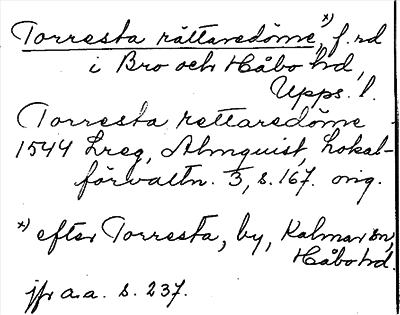 Torresta rättaredöme,*) f.rd
i Bro och Håbo hd,
Upps. l.
Torresta rettaredöme
1544 Lreg, Almquist, Lokal-
förvaltn. 3, s. 167. orig.
*) efter Torresta, by, Kalmar sn,
Håbo hd.
jfr a.a. s. 237.